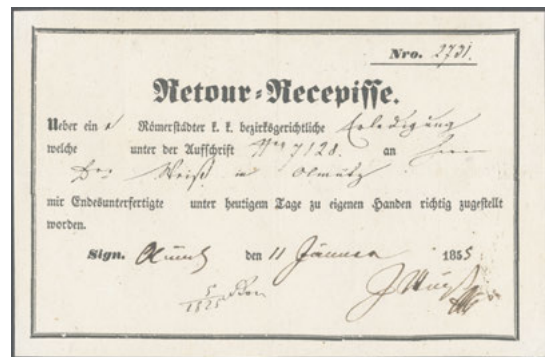 Nro. 2731.
Retour-Recepisse.
Ueber ein e Römerstädter k. k. bezirksgerichtliche Erledigung
welche unter der Aufschrift Nro 7128. an Herrn
Dr. Weiß in Olmütz
mir Endesunterfertigte unter heutigem Tage zu eigenen Handen richtig zugestellt
worden.
Sign. Olmütz den 11 Jänner 1855